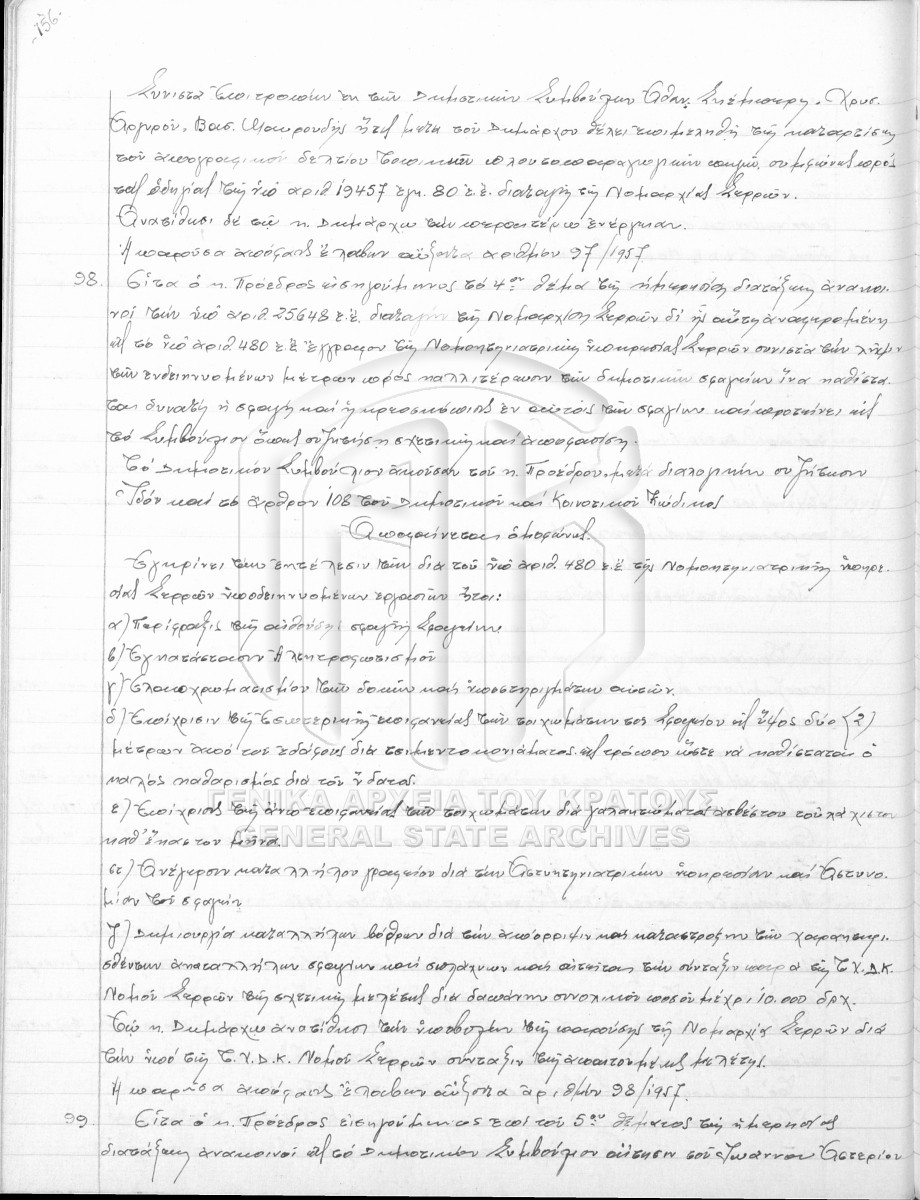 -156-
Συνιστᾶ Ἐπιτροπήν ἐκ τῶν Δημοτικῶν Συμβούλων Ἀθαν. Χρυσ.
Ἀργυροῦ, Βασ. Μαυρουδῆς ἥτις μετά τοῦ Δημάρχου θέλει ἐπιμεληθῆ τῆς καταρτίσεως
τοῦ ἀπογραφικοῦ δελτίου τοπικῶν πλουτοπαραγωγικῶν πηγῶν, συμφώνως πρός
τάς ὁδηγίας τῆς ὑπό ἀριθ 19457 ἐγκ. 80 ἐ.ἔ. διαταγῆς τῆς Νομαρχίας Σερρῶν.
Ἀναθέτει δέ τῷ κ. Δημάρχῳ τήν περαιτέρω ἐνέργειαν.
Ἡ παροῦσα ἀπόφασις ἔλαβεν αὔξοντα ἀριθμόν 97/1957
98. Εἶτα ὁ κ. Πρόεδρος εἰσηγούμενος τό 4ον θέμα τῆς ἡμερησίας διατάξεως ἀνακοι-
νοῖ τήν ὑπό ἀριθ. 25648 ἐ.ἔ. διαταγήν τῆς Νομαρχίας Σερρῶν δι' ἧς αὕτη ἀναφερομένη
εἰς τό ὑπό ἀριθ. 480 ἐ.ἔ. ἔγγραφον τῆς Νομοκτηνιατρικῆς ὑπηρεσίας Σερρῶν συνιστᾶ τήν λῆψιν
τῶν ἐνδεικνυομένων μέτρων πρός καλλιτέρευσιν τῶν δημοτικῶν σφαγείων ἵνα καθίστα-
ται δυνατή ἡ σφαγή καί ἡ κρεοσκόπισις ἐν αὐτοῖς τῶν σφαγίων καί προτείνει εἰς
τό Συμβούλιον ὅπως συζητήσῃ σχετικῶς καί ἀποφασίσῃ.
Τό Δημοτικόν Συμβούλιον ἀκοῦσαν τοῦ κ. Προέδρου, μετά διαλογικήν συζήτησιν
Ἰδόν καί τό ἄρθρον 108 τοῦ Δημοτικοῦ καί Κοινοτικοῦ Κώδικος
Ἀποφαίνεται ὁμοφώνως.
Ἐγκρίνει τήν ἐκτέλεσιν τῶν διά τοῦ ὑπό ἀριθ. 480 ἐ.ἔ τῆς Νομοκτηνιατρικῆς ὑπηρε-
σίας Σερρῶν ὑποδεικνυομένων ἐργασιῶν ἤτοι:
α) Περίφραξις τῆς αἰθούσης σφαγῆς Σφαγείων
β) Ἐγκατάστασιν Ἠλεκτροφωτισμοῦ
γ) Ἐλαιοχρωματισμόν τῶν δοκῶν καί ὑποστηριγμάτων αὐτῶν.
δ) Ἐπίχρισιν τῆς ἐσωτερικῆς ἐπιφανείας τῶν τοιχωμάτων τοῦ Σφαγείου εἰς ὕψος δύο (2)
μέτρων ἀπό τοῦ ἐδάφους διά τσιμεντοκονιάματος εἰς τρόπον ὥστε νά καθίσταται ὁ
καλός καθαρισμός διά τοῦ ὕδατος.
ε) Ἐπίχρισις τῆς ἄνω ἐπιφανείας τῶν τοιχωμάτων διά γαλακτώματος ἀσβέστου τοὐλάχιστον
καθ' ἕκαστον μῆνα
στ) Ἀνέγερσιν καταλλήλου γραφείου διά τήν Ἀστυκτηνιατρικήν ὑπηρεσίαν καί Ἀστυνο-
μίαν τοῦ σφαγείου
ζ) Δημιουργία καταλλήλων βόθρων διά τήν ἀπόρριψιν καί καταστροφήν τῶν χαρακτηρι-
σθέντων ἀκαταλλήλων σφαγίων καί σπλάχνων καί αἰτεῖται τήν σύνταξιν παρά τῆς Τ.Υ.Δ.Κ.
Νομοῦ Σερρῶν τῆς σχετικῆς μελέτης διά δαπάνην συνολικοῦ ποσοῦ μέχρι 10.000 δρχ.
Τῷ κ. Δημάρχῳ ἀναθέτει τήν ὑποβολήν τῆς παρούσης τῇ Νομαρχίᾳ Σερρῶν διά
τήν ὑπό τῆς Τ.Υ.Δ.Κ. Νομοῦ Σερρῶν σύνταξιν τῆς ἀπαιτουμένης μελέτης.
Ἡ παροῦσα ἀπόφασις ἔλαβεν αὔξοντα ἀριθμόν 98/1957.
99. Εἶτα ὁ κ. Πρόεδρος εἰσηγούμενος ἐπί τοῦ 5ου θέματος τῆς ἡμερησίας
διατάξεως ἀνακοινοῖ εἰς τό Δημοτικόν Συμβούλιον αἴτησιν τοῦ Ἰωάννου Ἀστερίου
ΓΕΝΙΚΑ ΑΡΧΕΙΑ ΤΟΥ ΚΡΑΤΟΥΣ
GENERAL STATE ARCHIVES